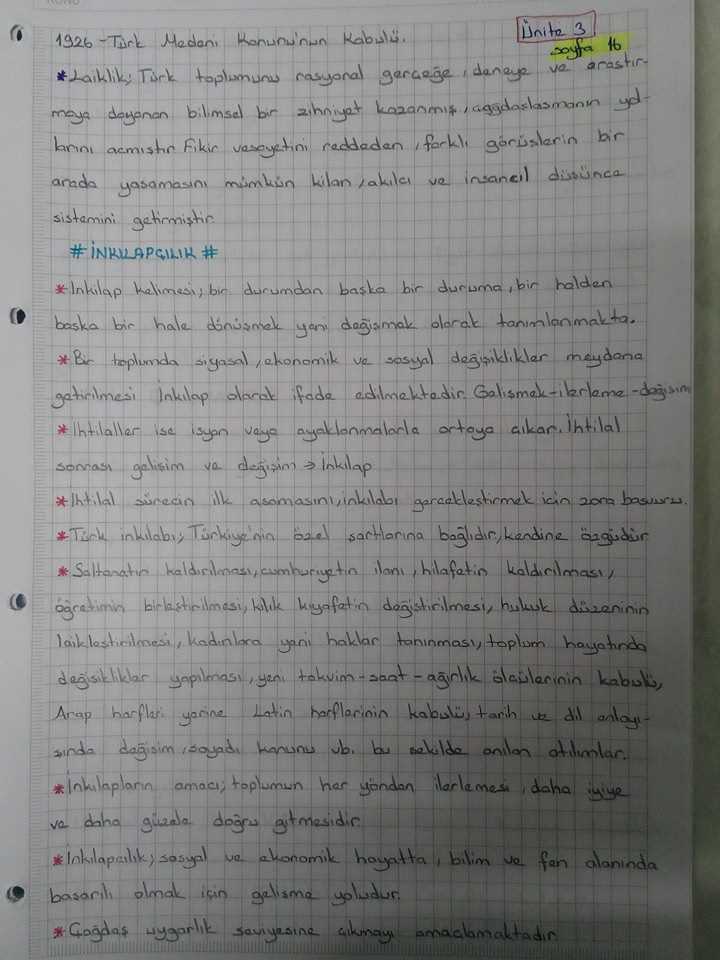 Ünite 3
1926 - Türk Medeni Kanunu'nun Kabulü.
sayfa 16
* Laiklik; Türk toplumunu rasyonal gerçeğe, deneye ve araştır-
maya dayanan bilimsel bir zihniyet kazanmış, çağdaşlaşmanın yol-
larını açmıştır. Fikir vesayetini reddeden, farklı görüşlerin bir
arada yaşamasını mümkün kılan, akılcı ve insancıl düşünce
sistemini getirmiştir.
# İNKILAPÇILIK #
* İnkılap kelimesi; bir durumdan başka bir duruma, bir halden
başka bir hale dönüşmek yani değişmek olarak tanımlanmakta.
* Bir toplumda siyasal, ekonomik ve sosyal değişiklikler meydana
getirilmesi İnkılap olarak ifade edilmektedir. Gelişmek-ilerleme-değişim
* İhtilaller ise isyan veya ayaklanmalarla ortaya çıkar. İhtilal
sonrası gelişim ve değişim → İnkılap
* İhtilal sürecin ilk aşamasını, inkılabı gerçekleştirmek için zora başvuru.
* Türk inkılabı; Türkiye'nin özel şartlarına bağlıdır, kendine özgüdür
* Saltanatın kaldırılması, cumhuriyetin ilanı, hilafetin kaldırılması,
öğretimin birleştirilmesi, kılık kıyafetin değiştirilmesi, hukuk düzeninin
laikleştirilmesi, kadınlara yeni haklar tanınması, toplum hayatında
değişiklikler yapılması, yeni takvim-saat-ağırlık ölçülerinin kabulü,
Arap harfleri yerine Latin harflerinin kabulü, tarih ve dil anlayı-
şında değişim, soyadı kanunu vb. bu şekilde anılan atılımlar.
* İnkılapların amacı; toplumun her yönden ilerlemesi, daha iyiye
ve daha güzele doğru gitmesidir.
* İnkılapçılık; sosyal ve ekonomik hayatta, bilim ve fen alanında
başarılı olmak için gelişme yoludur.
* Çağdaş uygarlık seviyesine çıkmayı amaçlamaktadır.